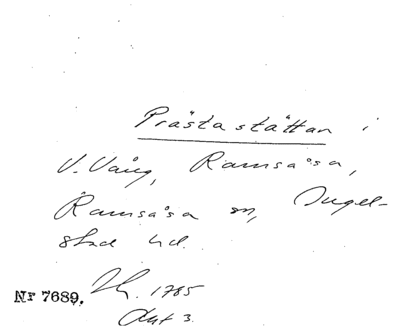 Prästastättan i
V. Vång, Ramsåsa,
Ramsåsa sn, Ingel-
stad hd.
Nr 7689. Lh. 1785
Akt 3.